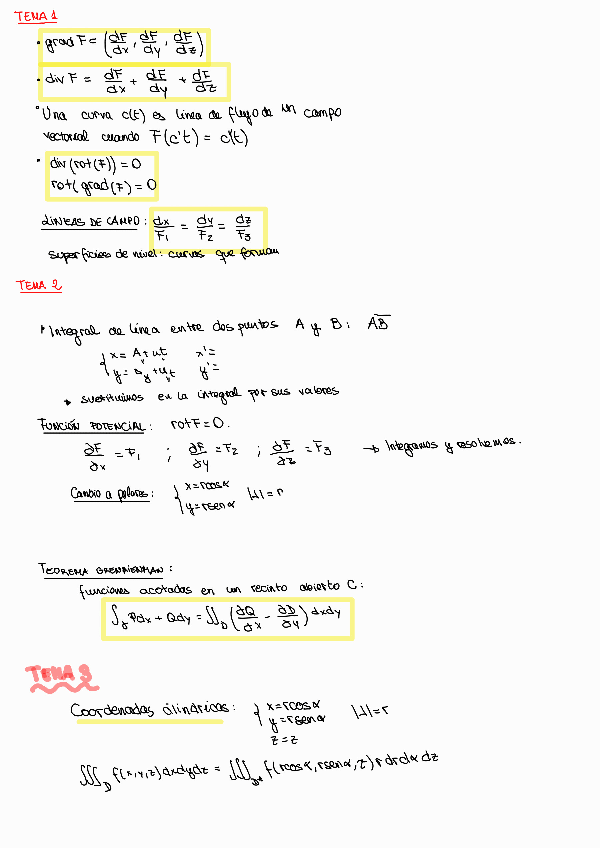 TEMA 1
• grad F = (dF/dx, dF/dy, dF/dz)
• div F = dF/dx + dF/dy + dF/dz
• Una curva c(t) es línea de flujo de un campo
vectorial cuando F(c't) = c'(t)
• div(rot(F)) = 0
rot(grad(F) = 0
LÍNEAS DE CAMPO: dx/F1 = dy/F2 = dz/F3
superficies de nivel: curvas que forman
TEMA 2
• Integral de línea entre dos puntos A y B: AB
x = A + ut x' =
y = + ut y' =
sustituimos en la integral por sus valores
FUNCIÓN POTENCIAL: rot F = 0.
∂F/∂x = F1 ; ∂F/∂y = F2 ; ∂F/∂z = F3 → Integramos y resolvemos.
Cambio a polares: { x = rcosα
y = rsenα |J| = r
TEOREMA :
funciones acotadas en un recinto abierto C:
∫γ Pdx + Qdy = ∬D (∂Q/∂x - ∂D/∂y) dxdy
TEMA 3
Coordenadas cilíndricas: { x = rcosα
y = rsenα |J| = r
z = z
∭D f(x,y,z) dxdydz = ∭D* f(rcosα, rsenα, z) r dr dα dz